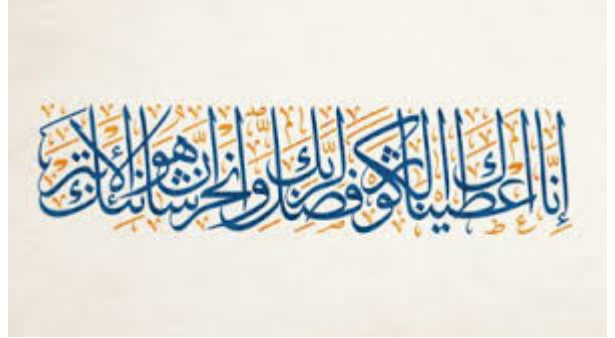 إِنَّا أَعْطَيْنَاكَ الْكَوْثَرَ فَصَلِّ لِرَبِّكَ وَانْحَرْ إِنَّ شَانِئَكَ هُوَ الْأَبْتَرُ